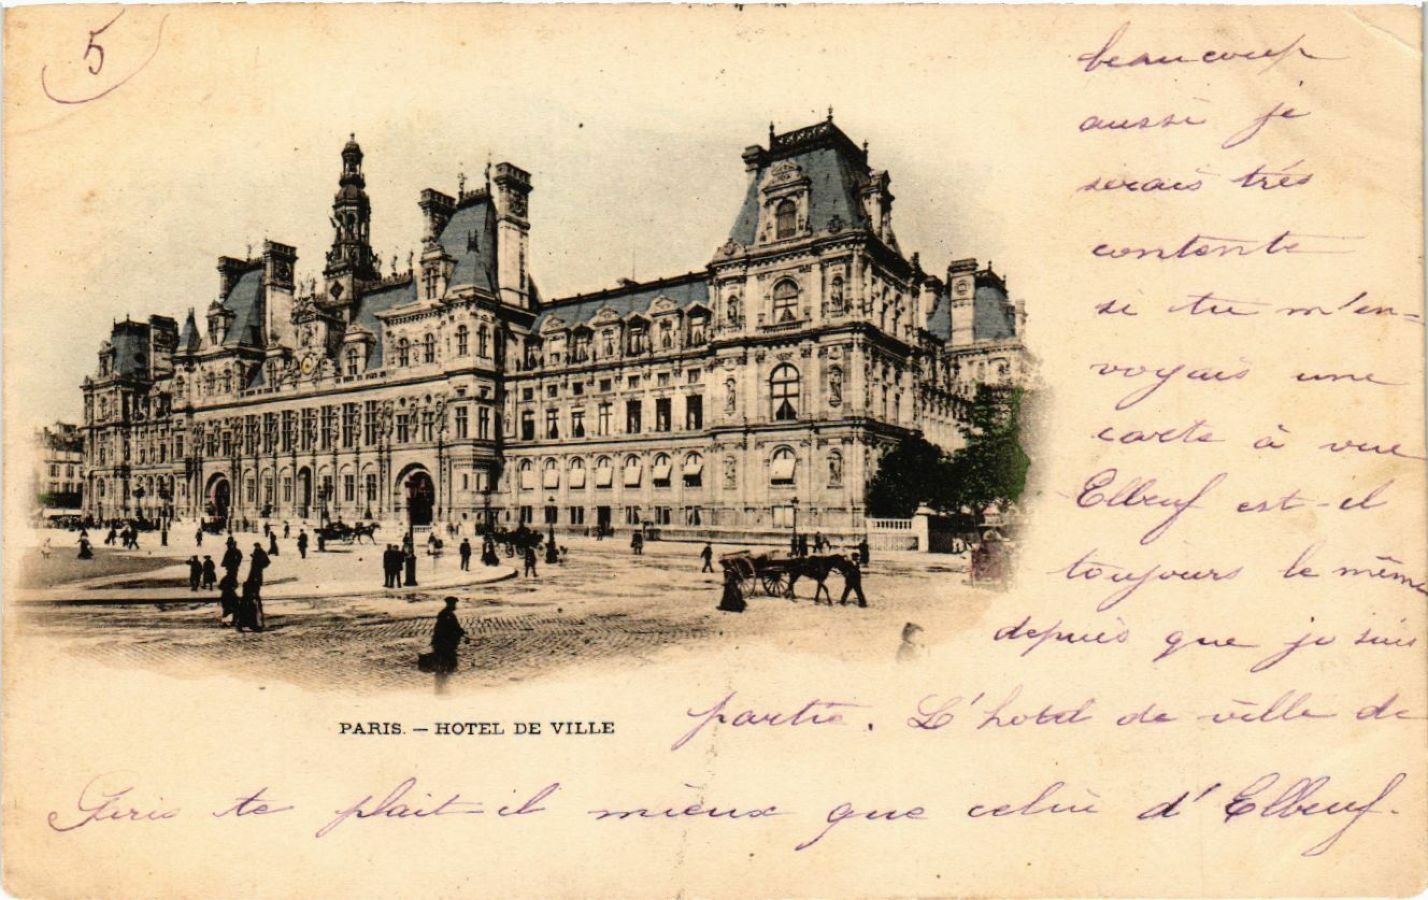 5
beaucoup
aussi je
serais très
contente
si tu m'en=
voyais une
carte à vue
Elbeuf est-il
toujours le même
depuis que je suis
partie. L'hotel de ville de
Paris te plait-il mieux que celui d'Elbeuf.
PARIS. — HOTEL DE VILLE